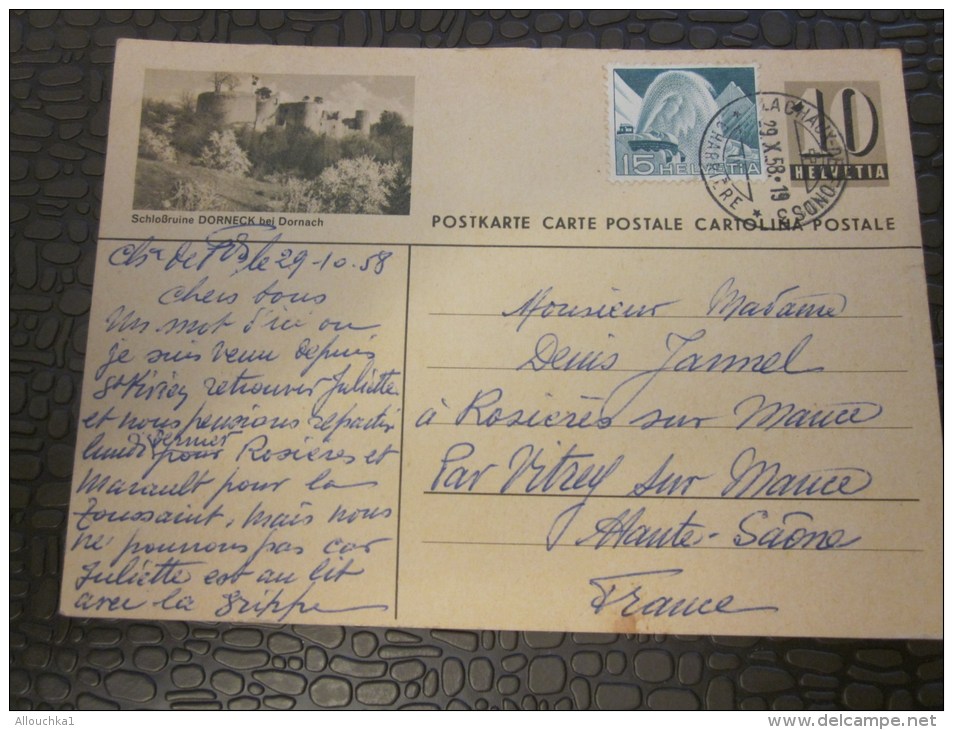 Schloßruine DORNECK bei Dornach
15 HELVETIA
LA CHAUX-DE-FONDS
29.X.58.19
CHARRIÈRE
10
HELVETIA
POSTKARTE CARTE POSTALE CARTOLINA POSTALE
le 29-10-58
Chers tous
Un mot d'ici ou
je suis venu depuis
retrouver Juliette
et nous pensions repartir
lundi dernier pour Rosières et
Marault pour la
Toussaint, mais nous
ne pouvons pas car
Juliette est au lit
avec la grippe
Monsieur Madame
Denis Jannel
à Rosières sur Mance
Par Vitrey sur Mance
Haute-Saône
France
Allouchka1
www.delcampe.net